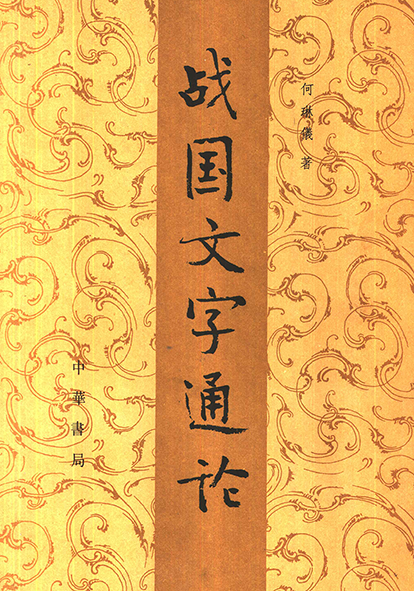 何琳儀 著
战国文字通论
中華書局